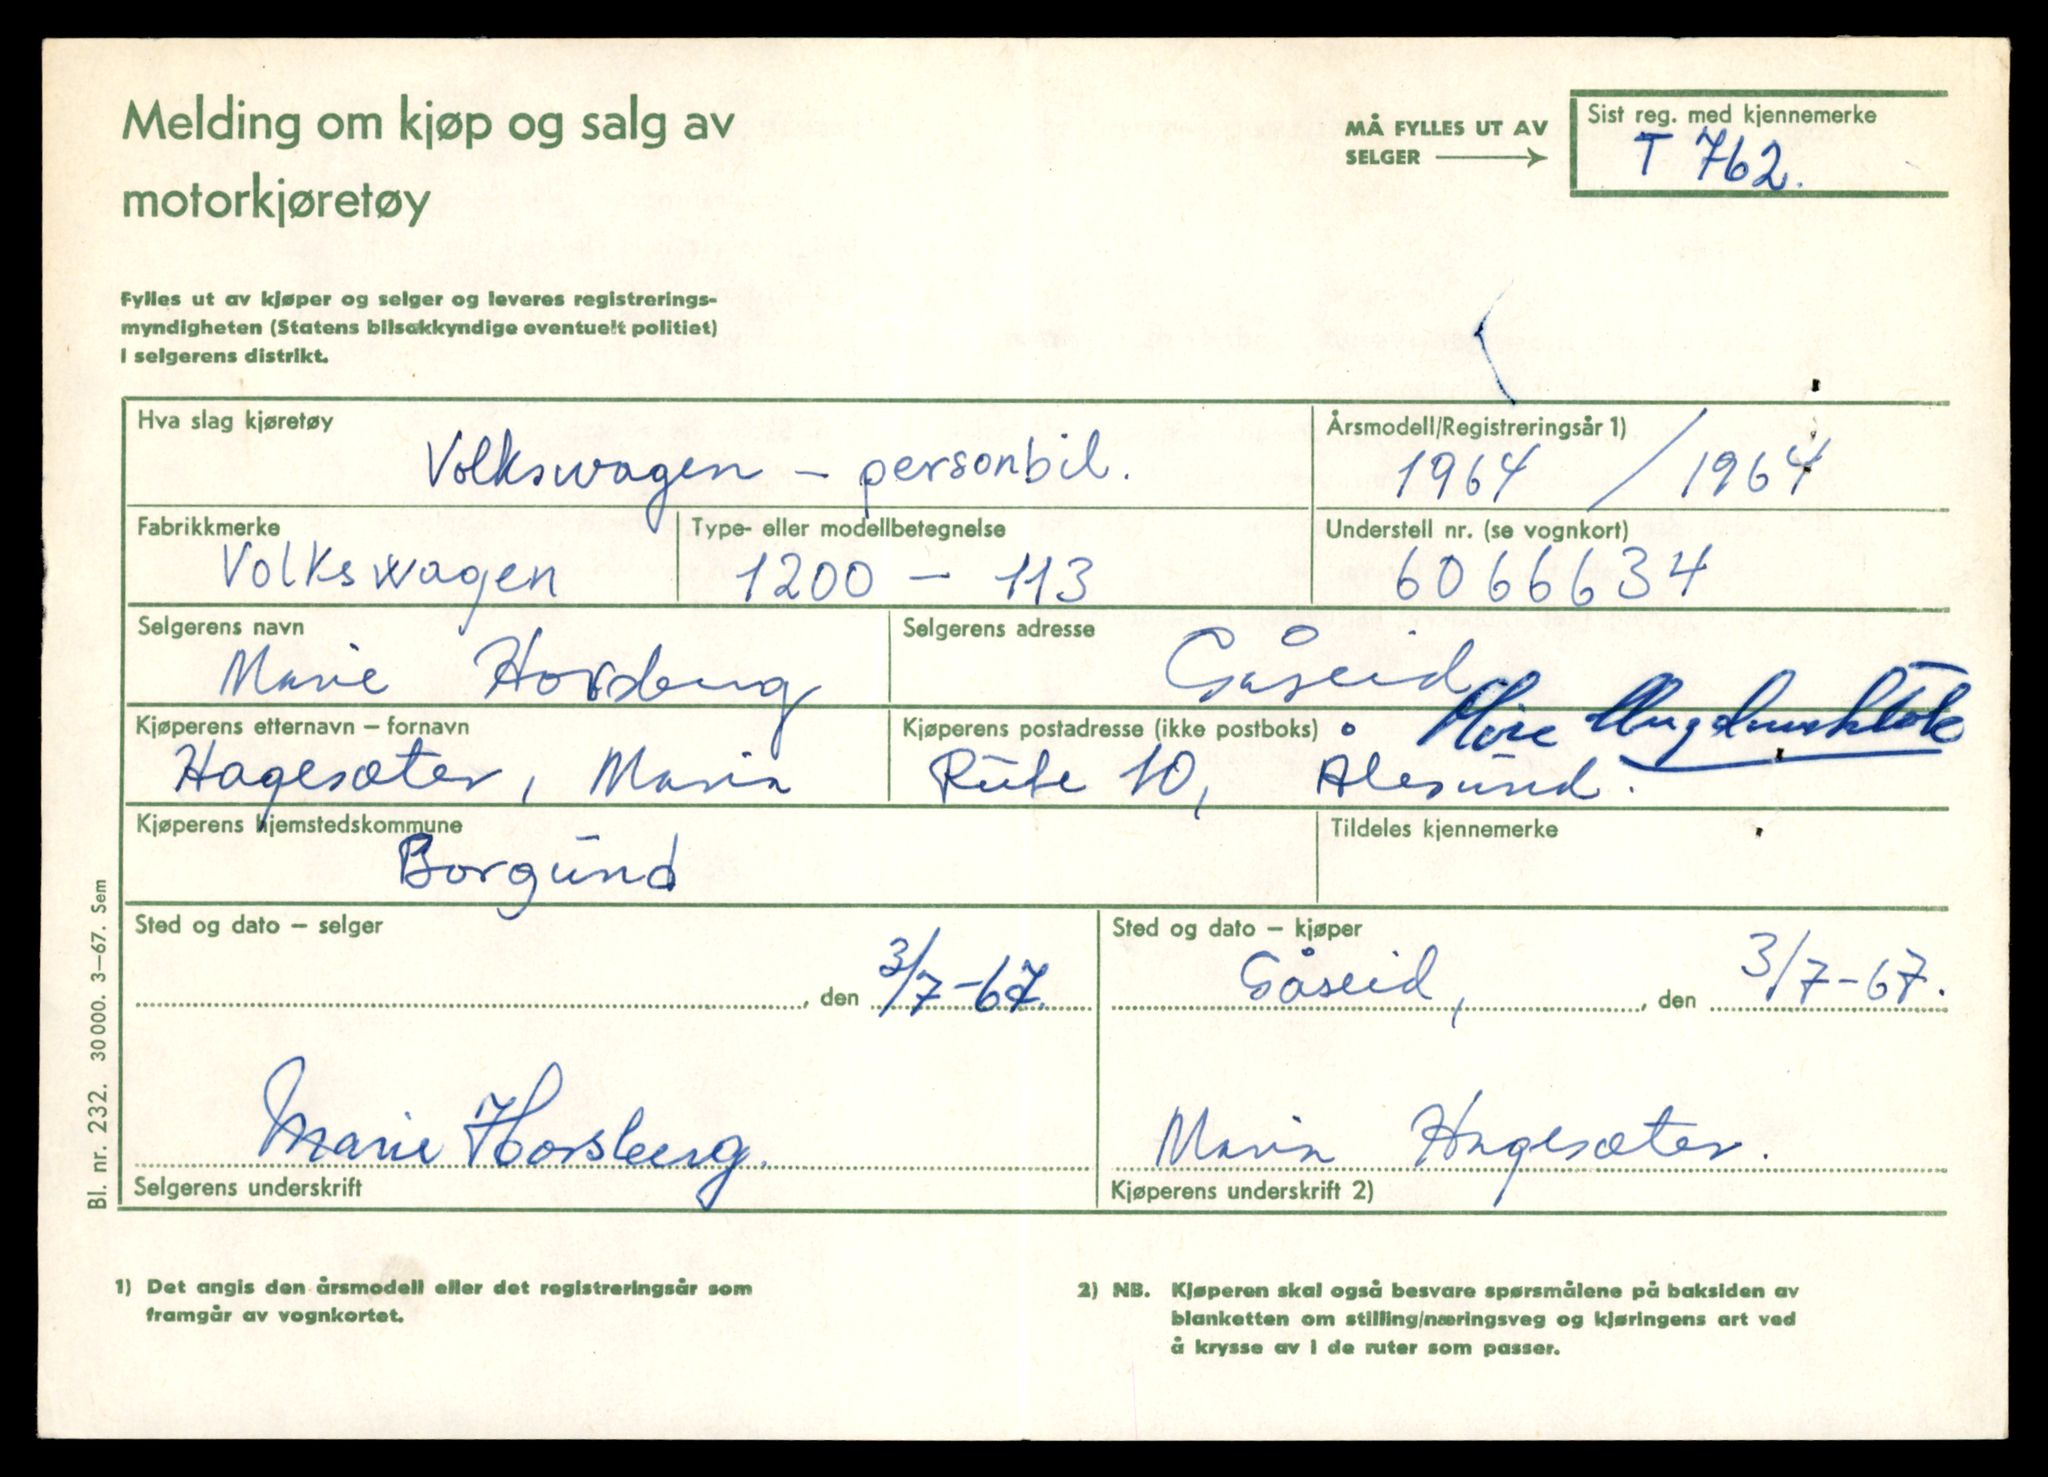 Melding om kjøp og salg av
motorkjøretøy
MÅ FYLLES UT AV
SELGER
Sist reg. med kjennemerke
T 762.
Fylles ut av kjøper og selger og leveres registrerings-
myndigheten (Statens bilsakkyndige eventuelt politiet)
i selgerens distrikt.
Hva slag kjøretøy
Volkswagen – personbil.
Årsmodell/Registreringsår 1)
1964 / 1964
Fabrikkmerke
Volkswagen
Type- eller modellbetegnelse
1200 – 113
Understell nr. (se vognkort)
6066634
Selgerens navn
Marie Horsberg
Selgerens adresse
Gåseid
Møre Ungdomsskole
Kjøperens etternavn – fornavn
Hagesæter, Maria
Kjøperens postadresse (ikke postboks)
Rute 10, Ålesund.
Kjøperens hjemstedskommune
Borgund
Tildeles kjennemerke
Sted og dato – selger
, den 3/7-67.
Sted og dato – kjøper
Gåseid, , den 3/7-67.
Marie Horsberg.
Selgerens underskrift
Maria Hagesæter.
Kjøperens underskrift 2)
Bl. nr. 232. 30000. 3–67. Sem
1) Det angis den årsmodell eller det registreringsår som
framgår av vognkortet.
2) NB. Kjøperen skal også besvare spørsmålene på baksiden av
blanketten om stilling/næringsveg og kjøringens art ved
å krysse av i de ruter som passer.